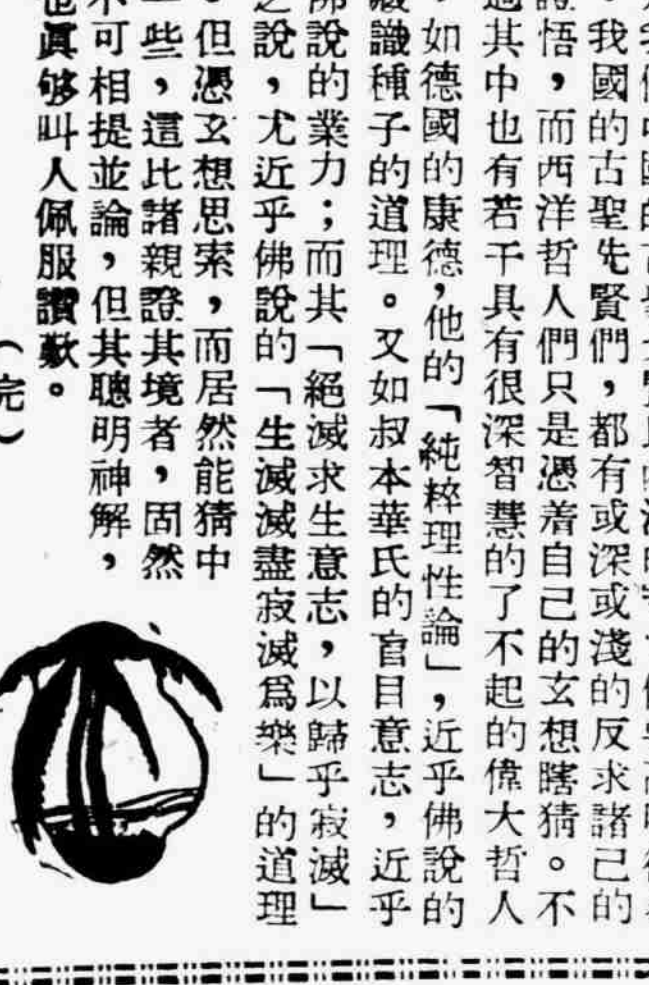 。我國的古聖先賢們，都有或深或淺的反求諸己的
證悟，而西洋哲人們只是憑着自己的玄想瞎猜。不
過其中也有若干具有很深智慧的了不起的偉大哲人
，如德國的康德，他的「純粹理性論」，近乎佛說的
藏識種子的道理。又如叔本華氏的盲目意志，近乎
佛說的業力；而其「絕滅求生意志，以歸乎寂滅」
之說，尤近乎佛說的「生滅滅盡寂滅爲樂」的道理
。但憑玄想思索，而居然能猜中
一些，這比諸親證其境者，固然
不可相提並論，但其聰明神解，
也眞够叫人佩服讚歎。
（完）